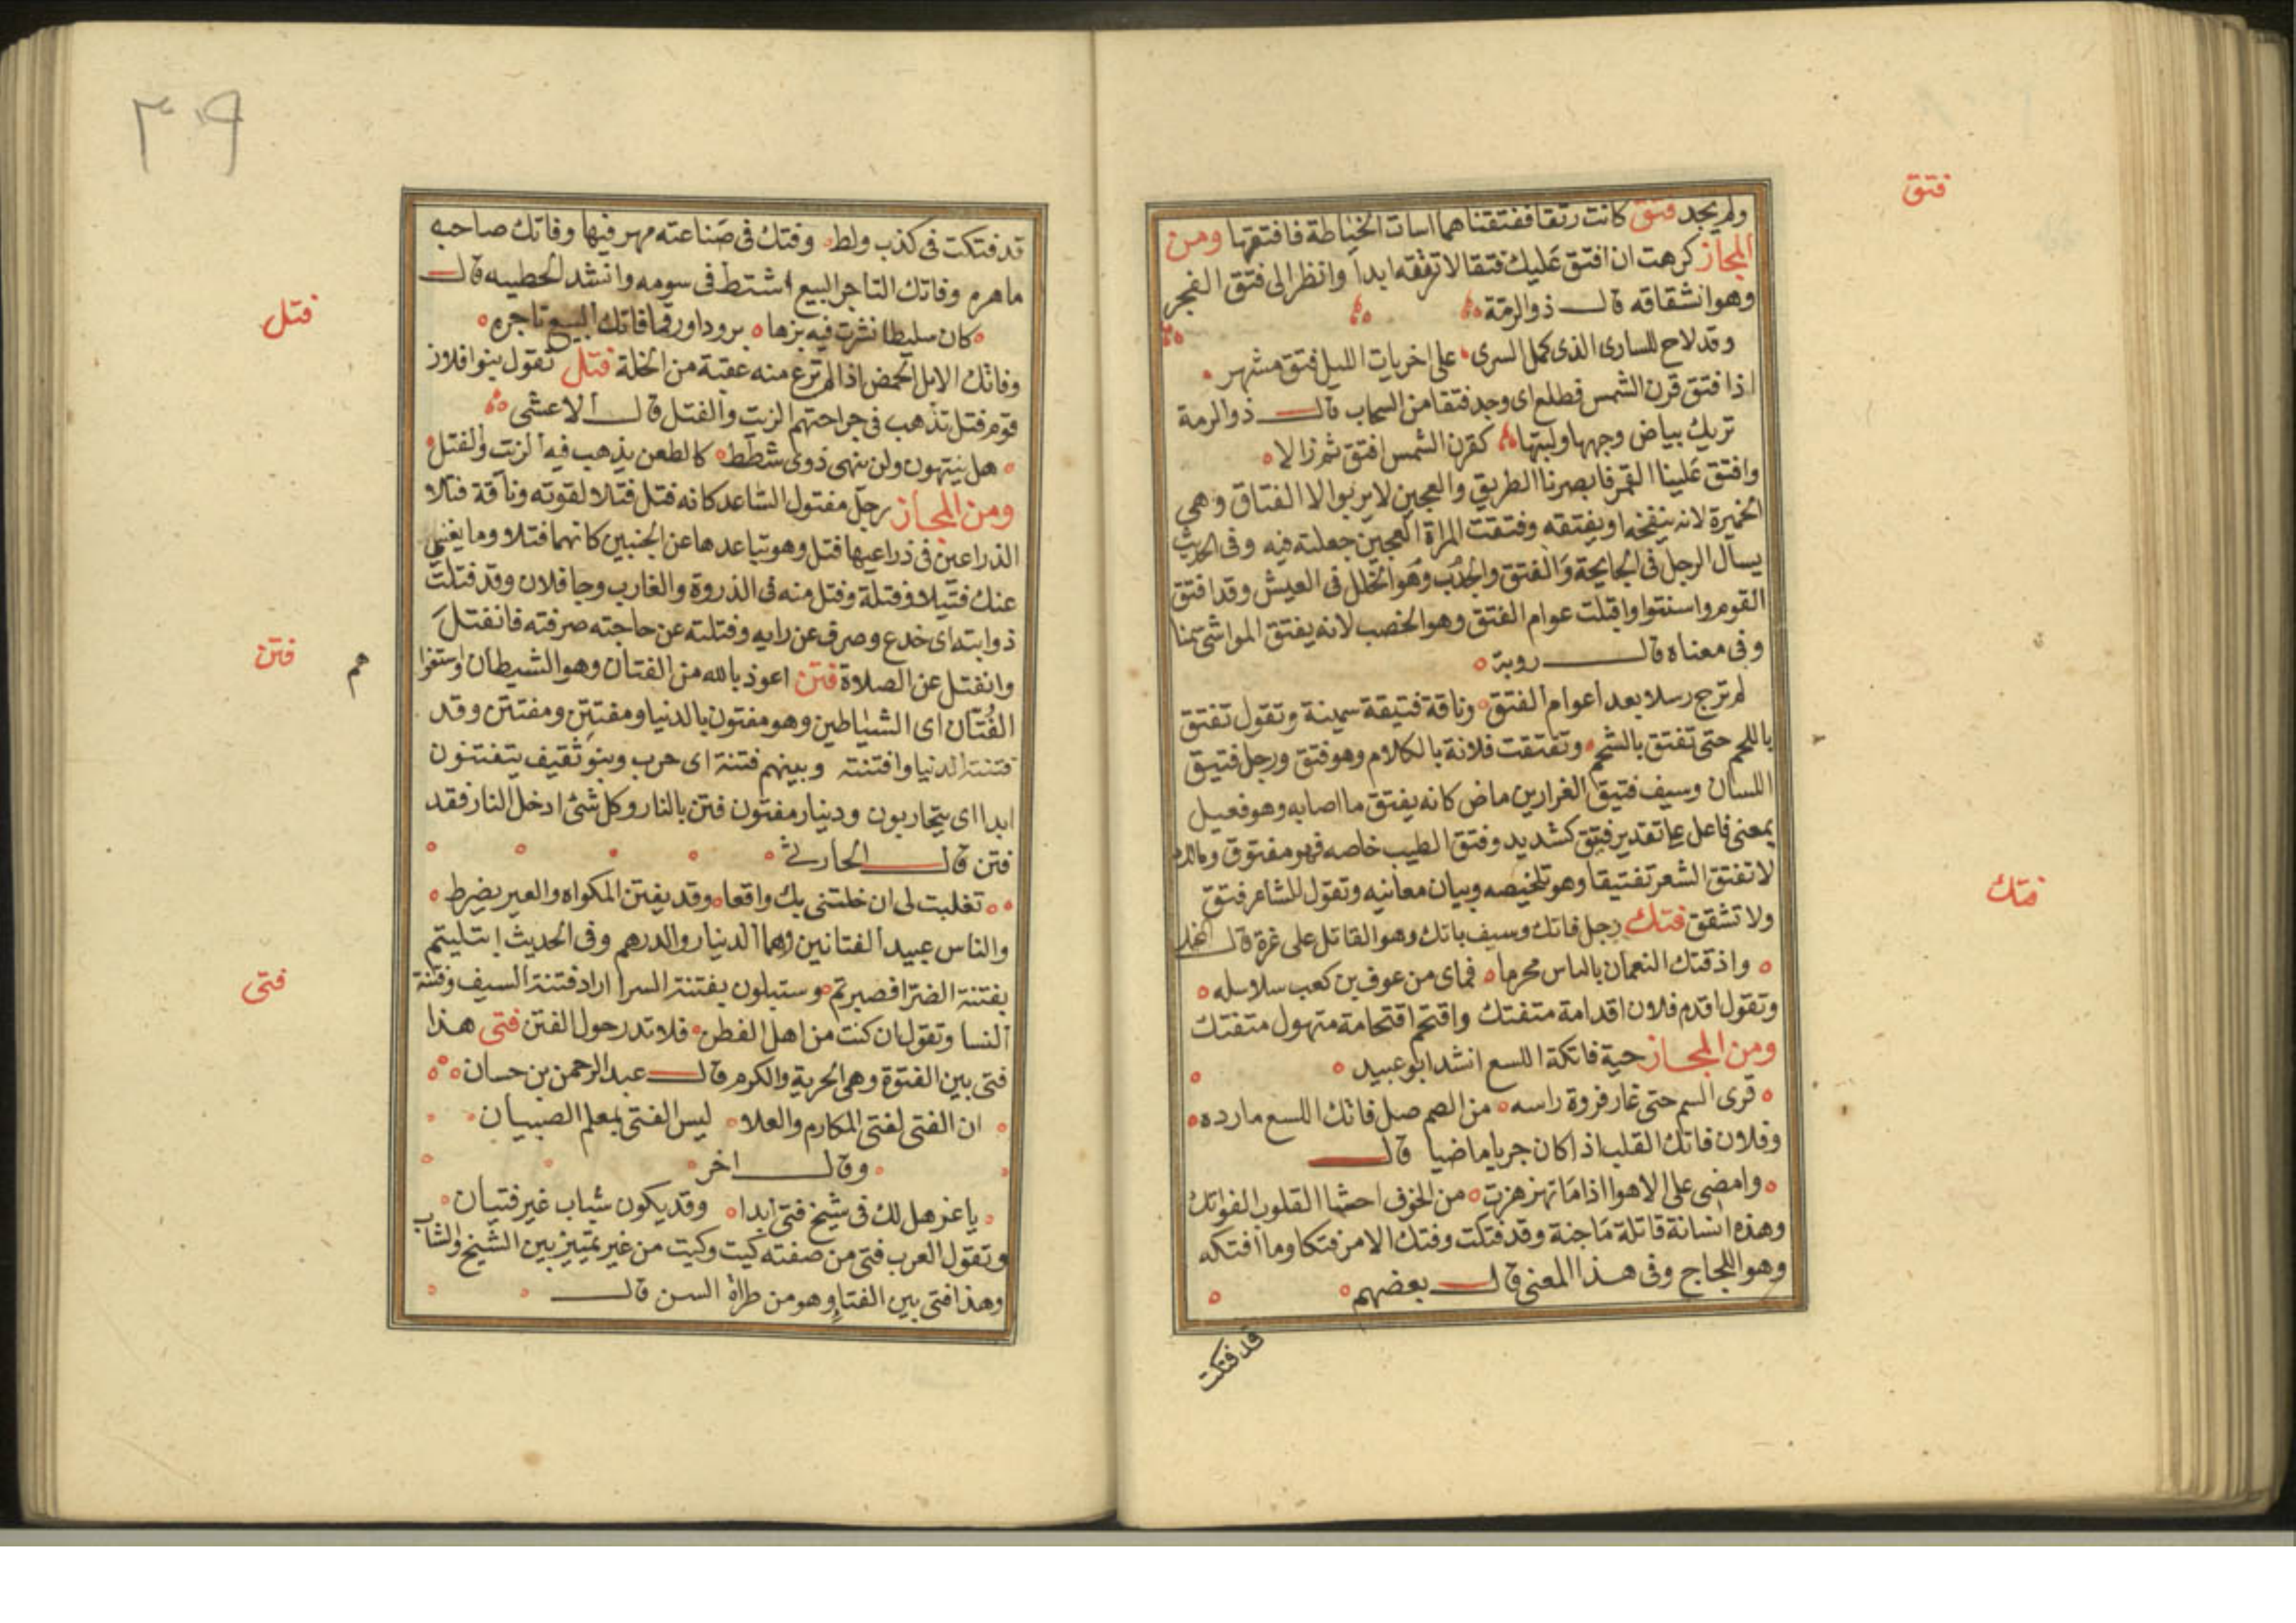 فتق
ولم يجد فتق كانت رتقا ففتقناهما اسات الخياطة فافتقها ومن
المجاز كرهت ان افتق عليك فتقا لا ترتقه ابدا وانظر الى فتق الفجر
وهو انشقاقه قال ذو الرمة
وقد لاح للسارى الذى كمل السرى على اخريات الليل فتق مشهر
اذا فتق قرن الشمس فطلع اى وجد فتقا من السحاب قال ذو الرمة
تريك بياض وجهها ولبتها كقرن الشمس افتق ثم زالا
وافتق علينا القمر فابصرنا الطريق والعجين لا يربوا الا الفتاق وهى
الخميرة لانه ينفخه او يفتقه وفتقت المراة العجين جعلته فيه وفى الحديث
يسال الرجل فى الجايحة والفتق والجدب وهو الخلل فى العيش وقد افتق
القوم واسنتوا واقبلت عوام الفتق وهو الخصب لانه يفتق المواشى سمنا
وفى معناه قال روبة
لم ترج رسلا بعد اعوام الفتق وناقة فتيقة سمينة وتقول تفتق
باللحم حتى تفتق بالشحم وتفتقت فلانة بالكلام وهو فتق ورجل فتيق
اللسان وسيف فتيق الغرارين ماض كانه يفتق ما اصابه وهو فعيل
بمعنى فاعل على تقدير فتق كشديد وفتق الطيب خاصه فهو مفتوق
لا تفتق الشعر تفتيقا وهو تلخيصه وبيان معانيه وتقول للشاعر فتق
ولا تشقق فتك رجل فاتك وسيف باتك وهو القاتل على غرة قال
فتك
واذ فتك النعمان بالناس محرما فماى من عوف بن كعب سلاسله
وتقول اقدم فلان اقدامة متفتك واقتحم اقتحامة متهول متفتك
ومن المجاز حية فاتكة اللسع انشد ابو عبيد
قرى السم حتى غار فروة راسه من الصم صل فاتك اللسع مارده
وفلان فاتك القلب اذا كان جريا ماضيا قال
وامضى على الاهوا اذا ما تهزهزت من الخوف احشا القلوب الفواتك
وهذه انسانة قاتلة ماجنة وقد فتكت وفتك الامر فتكا وما افتكه
وهو اللجاج وفى هذا المعنى قال بعضهم
قد فتكت
٣٠٩
قد فتكت فى كذب ولط وفتك فى صناعته مهر فيها وفاتك صاحبه
ماهره وفاتك التاجر البيع اشتط فى سومه وانشد للحطيبه قال
كان سليطا نشرت فيه بزها برودا ورقما فاتك البيع تاجره
فتل
وفاتك الابل الحمض اذا لم ترع منه عقبة من الخلة فتل تقول بنوا فلان
قوم فتل تذهب فى جراحتهم الزيت والفتل قال الاعشى
هل ينتهون ولن ينهى ذوى شطط كالطعن يذهب فيه الزيت والفتل
ومن المجاز رجل مفتول الساعد كانه فتل فتلا لقوته وناقة فتلا
الذراعين فى ذراعيها فتل وهو تباعدها عن الجنبين كانهما فتلا وما يغنى
عنك فتيلا وفتلة وفتل منه فى الذروة والغارب وجا فلان وقد فتلت
ذوابته اى خدع وصرف عن رايه وفتلته عن حاجته صرفته فانفتل
وانفتل عن الصلاة فتن اعوذ بالله من الفتان وهو الشيطان
فتن
هم
الفتان اى الشياطين وهو مفتون بالدنيا ومفتتن ومفتتن وقد
فتنته الدنيا وافتنته وبينهم فتنة اى حرب وبنو ثقيف يتفتنون
ابدا اى يتحاربون ودينار مفتون فتن بالنار وكل شئ ادخل النار فقد
فتن قال الحارثى
تغلبت لى ان خلتنى بك واقعا وقد يفتن المكواه والعير يضرط
والناس عبيد الفتانين وهما الدينار والدرهم وفى الحديث ابتليتم
بفتنة الضرا فصبرتم وستبلون بفتنة السرا اراد فتنة السيف وفتنة
فتى
النسا وتقول ان كنت من اهل الفطن فلا تدر حول الفتن فتى هذا
فتى بين الفتوة وهى الحرية والكرم قال عبد الرحمن بن حسان
ان الفتى لفتى المكارم والعلا ليس الفتى بمعلم الصبيان
وقال اخر
يا عز هل لك فى شيخ فتى ابدا وقد يكون شباب غير فتيان
وتقول العرب فتى من صفته كيت وكيت من غير تمييز بين الشيخ والشاب
وهذا فتى بين الفتا وهو من طراة السن قال